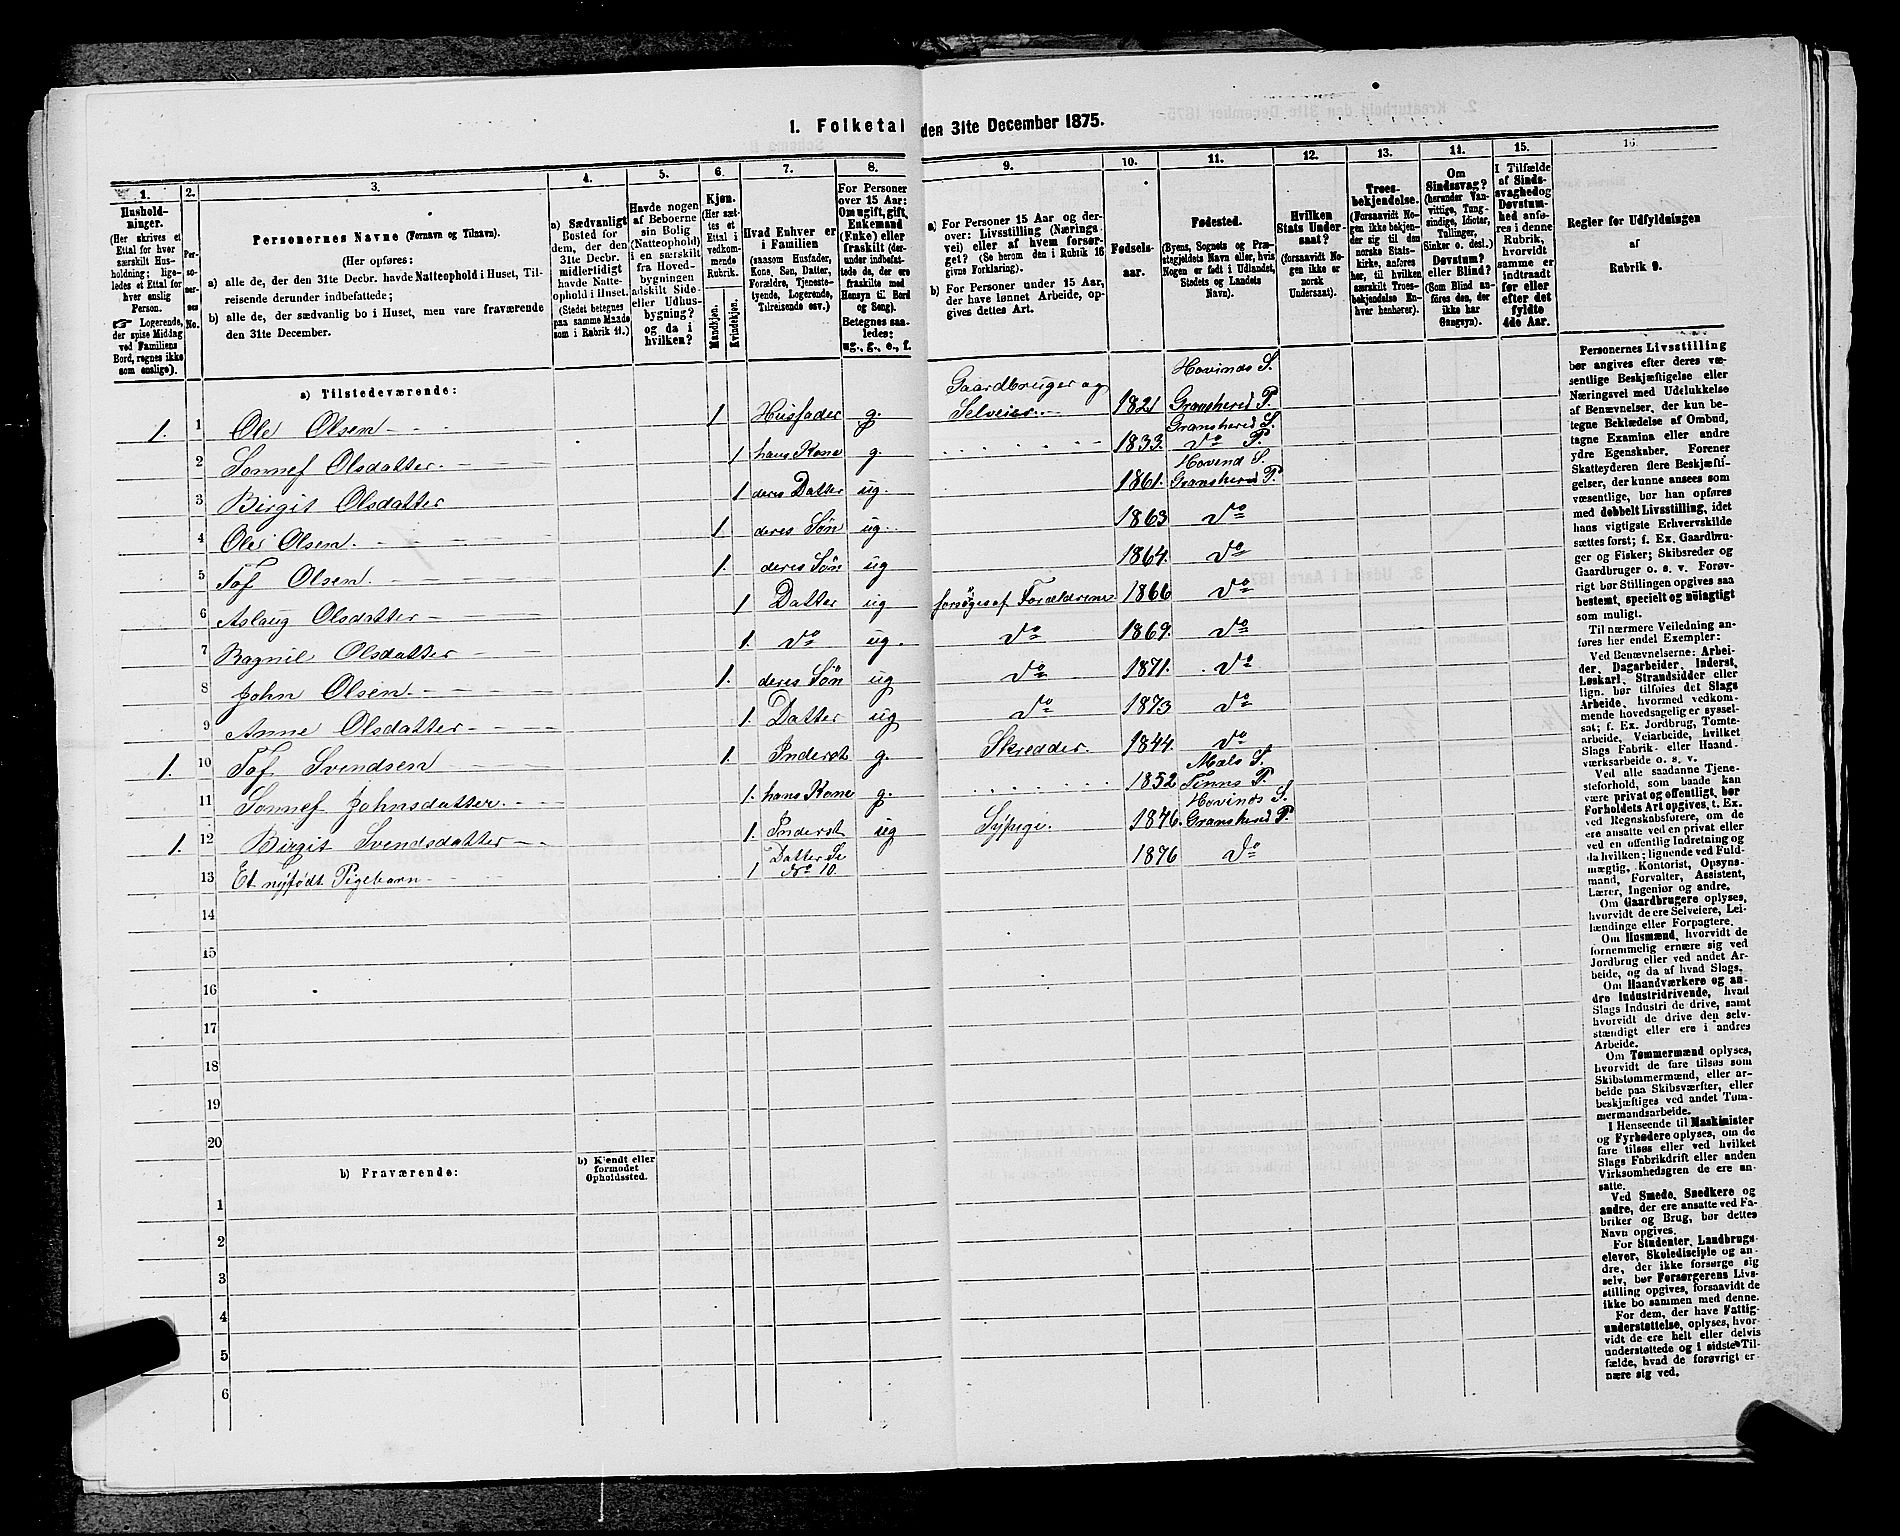 1. Folketal den 31te December 1875.
1.
Hushold-
ninger.
(Her skrives et
Ettal for hver
særskilt Hus-
holdning; lige-
ledes et Ettal for
hver enslig
Person.
☞ Logerende,
der spise Middag
ved Familiens
Bord, regnes ikke
som enslige).
2.
Per-
so-
ner-
nes
No.
3.
Personernes Navne (Fornavn og Tilnavn).
(Her opføres:
a) alle de, der den 31te Decbr. havde Natteophold i Huset, Til-
reisende derunder indbefattede;
b) alle de, der sædvanlig bo i Huset, men vare fraværende
den 31te December.
4.
a) Sædvanligt
Bosted for
dem, der den
31te Decbr.
midlertidigt
havde Natte-
ophold i Huset.
(Stedet betegnes
paa samme Maade
som i Rubrik 11.)
5.
Havde nogen
af Beboerne
sin Bolig
(Natteophold)
i en særskilt
fra Hoved-
bygningen
adskilt Side-
eller Udhus-
bygning?
og da i
hvilken?
6.
Kjøn.
(Her sæt-
tes et
Ettal i
vedkom-
mende
Rubrik.
Mandkjøn.
Kvindekjøn.
7.
Hvad Enhver er
i Familien
(saasom Husfader,
Kone, Søn, Datter,
Forældre, Tjeneste-
tyende, Logerende,
Tilreisende osv.)
8.
For Personer
over 15 Aar:
Om ugift, gift,
Enkemand
(Enke) eller
fraskilt (der-
under indbefat-
tede de, der ere
fraskilte med
Hensyn til Bord
og Seng).
Betegnes saa-
ledes:
ug., g., e., f.
9.
a) For Personer 15 Aar og der-
over: Livsstilling (Nærings-
vei) eller af hvem forsør-
get? (Se herom den i Rubrik 16
givne Forklaring).
b) For Personer under 15 Aar,
der have lønnet Arbeide, op-
gives dettes Art.
10.
Fødsels-
aar.
11.
Fødested.
(Byens, Sognets og Præ-
stegjeldets Navn eller, hvis
Nogen er født i Udlandet,
Stedets og Landets
Navn).
12.
Hvilken
Stats Under-
saat?
(forsaavidt No-
gen ikke er
norsk
Undersaat).
13.
Troes-
bekjendelse.
(Forsaavidt No-
gen ikke bekjen-
der sig til den
norske Stats-
kirke, anføres
her, til hvilken
særskilt Troes-
bekjendelse En-
hver henhører).
14.
Om
Sindssvag?
(herunder Van-
vittige, Tung-
sindige, Idioter,
Tullinger,
Sinker o. desl.)
Døvstum?
eller Blind?
(Som Blind an-
føres den, der
ikke har
Gangsyn).
15.
I Tilfælde
af Sinds-
svaghed og
Døvstum-
hed anfø-
res i denne
Rubrik,
hvorvidt
samme er
indtraadt
før eller
efter det
fyldte
4de Aar.
16
Regler for Udfyldningen
af
Rubrik 9.
a) Tilstedeværende:
1. 1 Ole Olsen 1 Husfader g. Gaardbruger og Selveier 1821 Hovinds S. Gransherred P.
2 Sonnef Olsdatter 1 hans Kone g. 1833. Gransherred S. do P.
3 Birgit Olsdatter 1 deres Datter ug. 1861. Hovind S. Gransherred P.
4 Ole Olsen 1 deres Søn ug. 1863 do
5 Tof Olsen 1. deres Søn ug 1864. do
6 Aslaug Olsdatter 1 Datter ug forsøges af Forældrene 1866 do
7 Ragnil Olsdatter 1. do ug. do 1869. do
8 John Olsen 1. deres Søn ug do 1871. do
9 Anne Olsdatter 1. Datter ug do 1873 do
1. 10 Tof Svendsen 1. Inderst g. Skredder. 1844. do
11 Sonnef Johnsdatter 1. hans Kone g. 1852 Mæls S. Tinns P.
1. 12 Birgit Svendsdatter 1. Inderst ug Sypige. 1846. Hovinds S. Gransherred P.
13 Et nyfødt Pigebarn 1 Datter Se No 10. 1876 do
14
15
16
17
18
19
20
b) Fraværende:
b) Kjendt eller
formodet
Opholdssted.
1
2
3
4
5
6
Personernes Livsstilling
bør angives efter deres væ-
sentlige Beskjæftigelse eller
Næringsvei med Udelukkelse
af Benævnelser, der kun be-
tegne Beklædelse af Ombud,
tagne Examina eller andre
ydre Egenskaber. Forener
Skatteyderen flere Beskjæfti-
gelser, der kunne ansees som
væsentlige, bør han opføres
med dobbelt Livsstilling, idet
hans vigtigste Erhvervskilde
sættes først; f. Ex. Gaardbru-
ger og Fisker; Skibsreder og
Gaardbruger o. s. v. Forøv-
rigt bør Stillingen opgives saa
bestemt, specielt og nøiagtigt
som muligt.
Til nærmere Veiledning an-
føres her endel Exempler:
Ved Benævnelserne: Arbei-
der, Dagarbeider, Inderst,
Løskarl, Strandsidder eller
lign. bør tilføies det Slags
Arbeide, hvormed vedkom-
mende hovedsagelig er syssel-
sat; f. Ex. Jordbrug, Tomte-
arbeide, Veiarbeide, hvilket
Slags Fabrik- eller Haand-
værksarbeide o. s. v.
Ved alle saadanne Tjene-
steforhold, som baade kan
være privat og offentligt, bør
Forholdets Art opgives, t. Ex.
ved Regnskabsførere, om de
ere ansatte ved en privat eller
ved en offentlig Indretning og
da hvilken; lignende ved Fuld-
mægtig, Kontorist, Opsyns-
mand, Forvalter, Assistent,
Lærer, Ingeniør og andre.
Om Gaardbrugere oplyses,
hvorvidt de ere Selveiere, Lei-
lændinge eller Forpagtere.
Om Husmænd, hvorvidt de
fornemmelig ernære sig ved
Jordbrug eller ved andet Ar-
beide, og da af hvad Slags.
Om Haandværkere og an-
dre Industridrivende, hvad
Slags Industri de drive, samt
hvorvidt de drive den selv-
stændigt eller ere i andres
Arbeide.
Om Tømmermænd oplyses,
hvorvidt de fare tilsøs som
Skibstømmermænd, eller ar-
beide paa Skibsværfter, eller
beskjæftiges ved andet Tøm-
mermandsarbeide.
I Henseende til Maskinister
og Fyrbødere oplyses, om de
fare tilsøs eller ved hvilket
Slags Fabrikdrift eller anden
Virksomhedsgren de ere an-
satte.
Ved Smede, Snedkere og
andre, der ere ansatte ved Fa-
briker og Brug, bør dettes
Navn opgives.
For Studenter, Landbrugs-
elever, Skoledisciple og an-
dre, der ikke forsørge sig
selv, bør Forsørgerens Livs-
stilling opgives, forsaavidt de
ikke bo sammen med denne.
For dem, der have Fattig-
understøttelse, oplyses, hvor-
vidt de ere helt eller delvis
understøttede og i sidste Til-
fælde, hvad de forøvrigt er-
nære sig ved.